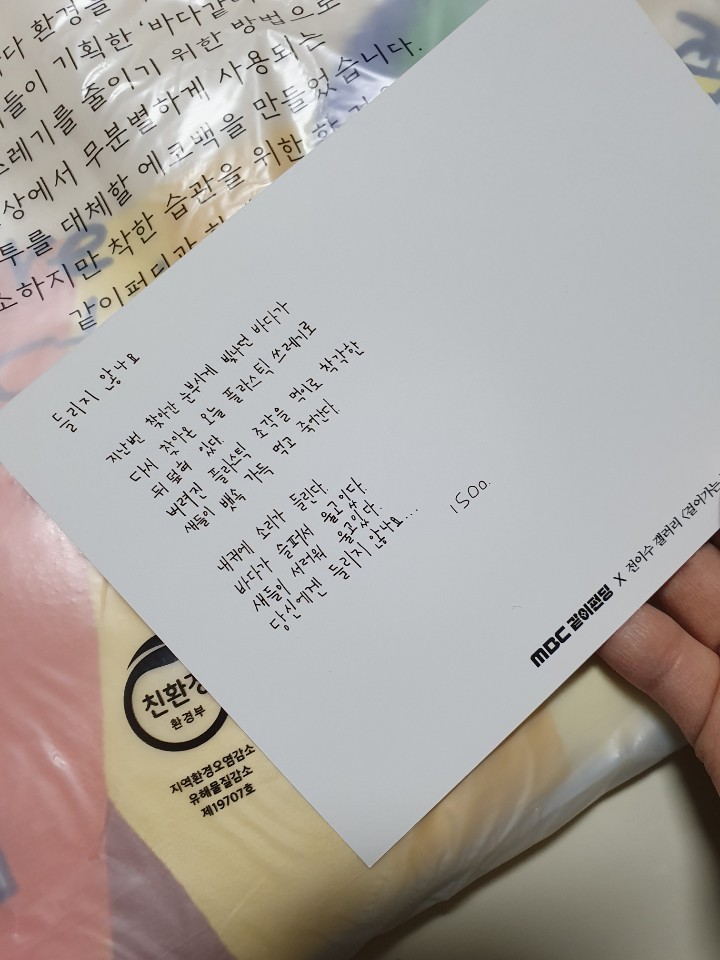 다 환경을
들이 기획한 '바다같이
쓰레기를 줄이기 위한 방법으로
상에서 무분별하게 사용되는
투를 대체할 에코백을 만들었습니다.
소하지만 착한 습관을 위한 한
같이펀딩과
들리지 않나요
지난번 찾아간 눈부시게 빛나던 바다가
다시 찾아온 오늘 플라스틱 쓰레기로
뒤덮혀 있다
버려진 플라스틱 조각을 먹이로 착각한
새들이 뱃속 가득 먹고 죽어간다
내귀에 소리가 들린다
바다가 슬퍼서 울고있다
새들이 서러워 울고있다.
당신에겐 들리지 않나요...
ISOO.
MBC 같이펀딩 X 전이수 갤러리 <걸어가는
친환경
환경부
지역환경오염감소
유해물질감소
제19707호